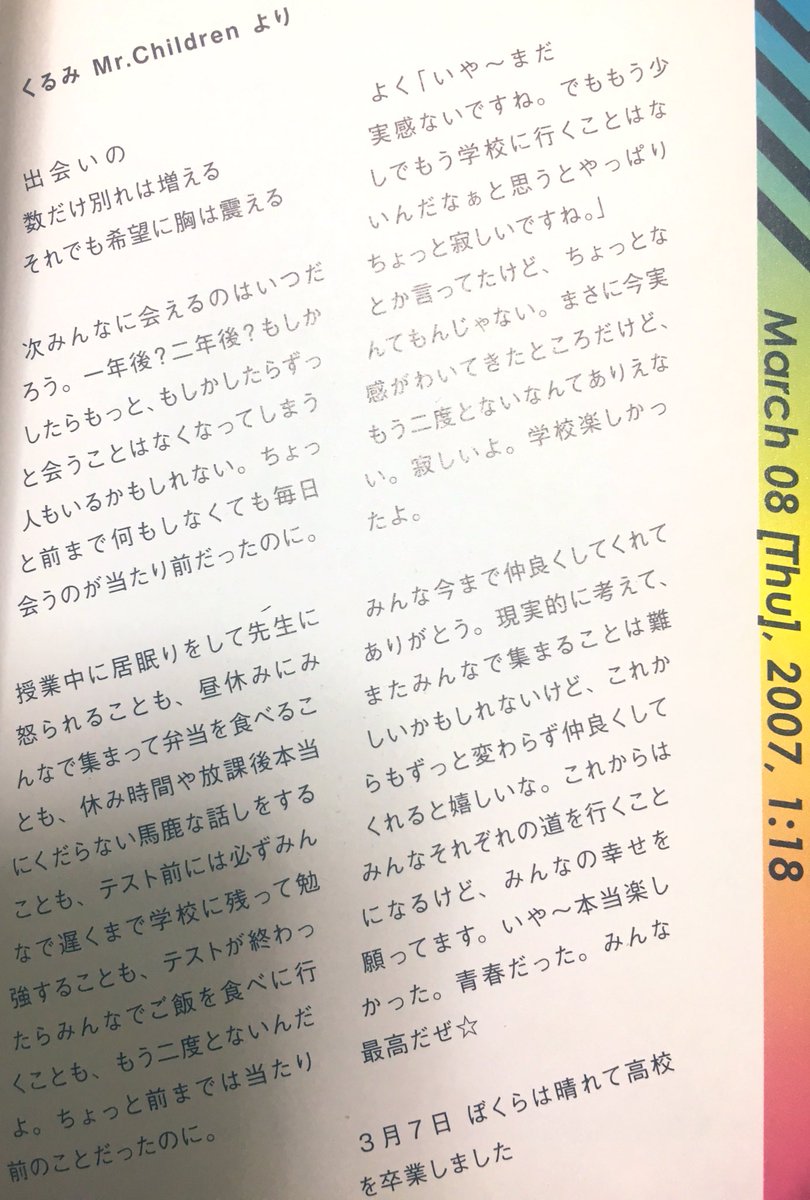 くるみ Mr.Children より
出会いの
数だけ別れは増える
それでも希望に胸は震える
次みんなに会えるのはいつだ
ろう。一年後？二年後？もしか
したらもっと、もしかしたらずっ
と会うことはなくなってしまう
人もいるかもしれない。ちょっ
と前まで何もしなくても毎日
会うのが当たり前だったのに。
授業中に居眠りをして先生に
怒られることも、昼休みにみ
んなで集まって弁当を食べるこ
とも、休み時間や放課後本当
にくだらない馬鹿な話しをする
ことも、テスト前には必ずみん
なで遅くまで学校に残って勉
強することも、テストが終わっ
たらみんなでご飯を食べに行
くことも、もう二度とないんだ
よ。ちょっと前までは当たり
前のことだったのに。
よく「いや〜まだ
実感ないですね。でももう少
しでもう学校に行くことはな
いんだなぁと思うとやっぱり
ちょっと寂しいですね。」
とか言ってたけど、ちょっとな
んてもんじゃない。まさに今実
感がわいてきたところだけど、
もう二度とないなんてありえな
い。寂しいよ。学校楽しかっ
たよ。
みんな今まで仲良くしてくれて
ありがとう。現実的に考えて、
またみんなで集まることは難
しいかもしれないけど、これか
らもずっと変わらず仲良くして
くれると嬉しいな。これからは
みんなそれぞれの道を行くこと
になるけど、みんなの幸せを
願ってます。いや〜本当楽し
かった。青春だった。みんな
最高だぜ☆
3月7日 ぼくらは晴れて高校
を卒業しました
March 08 [Thu], 2007, 1:18